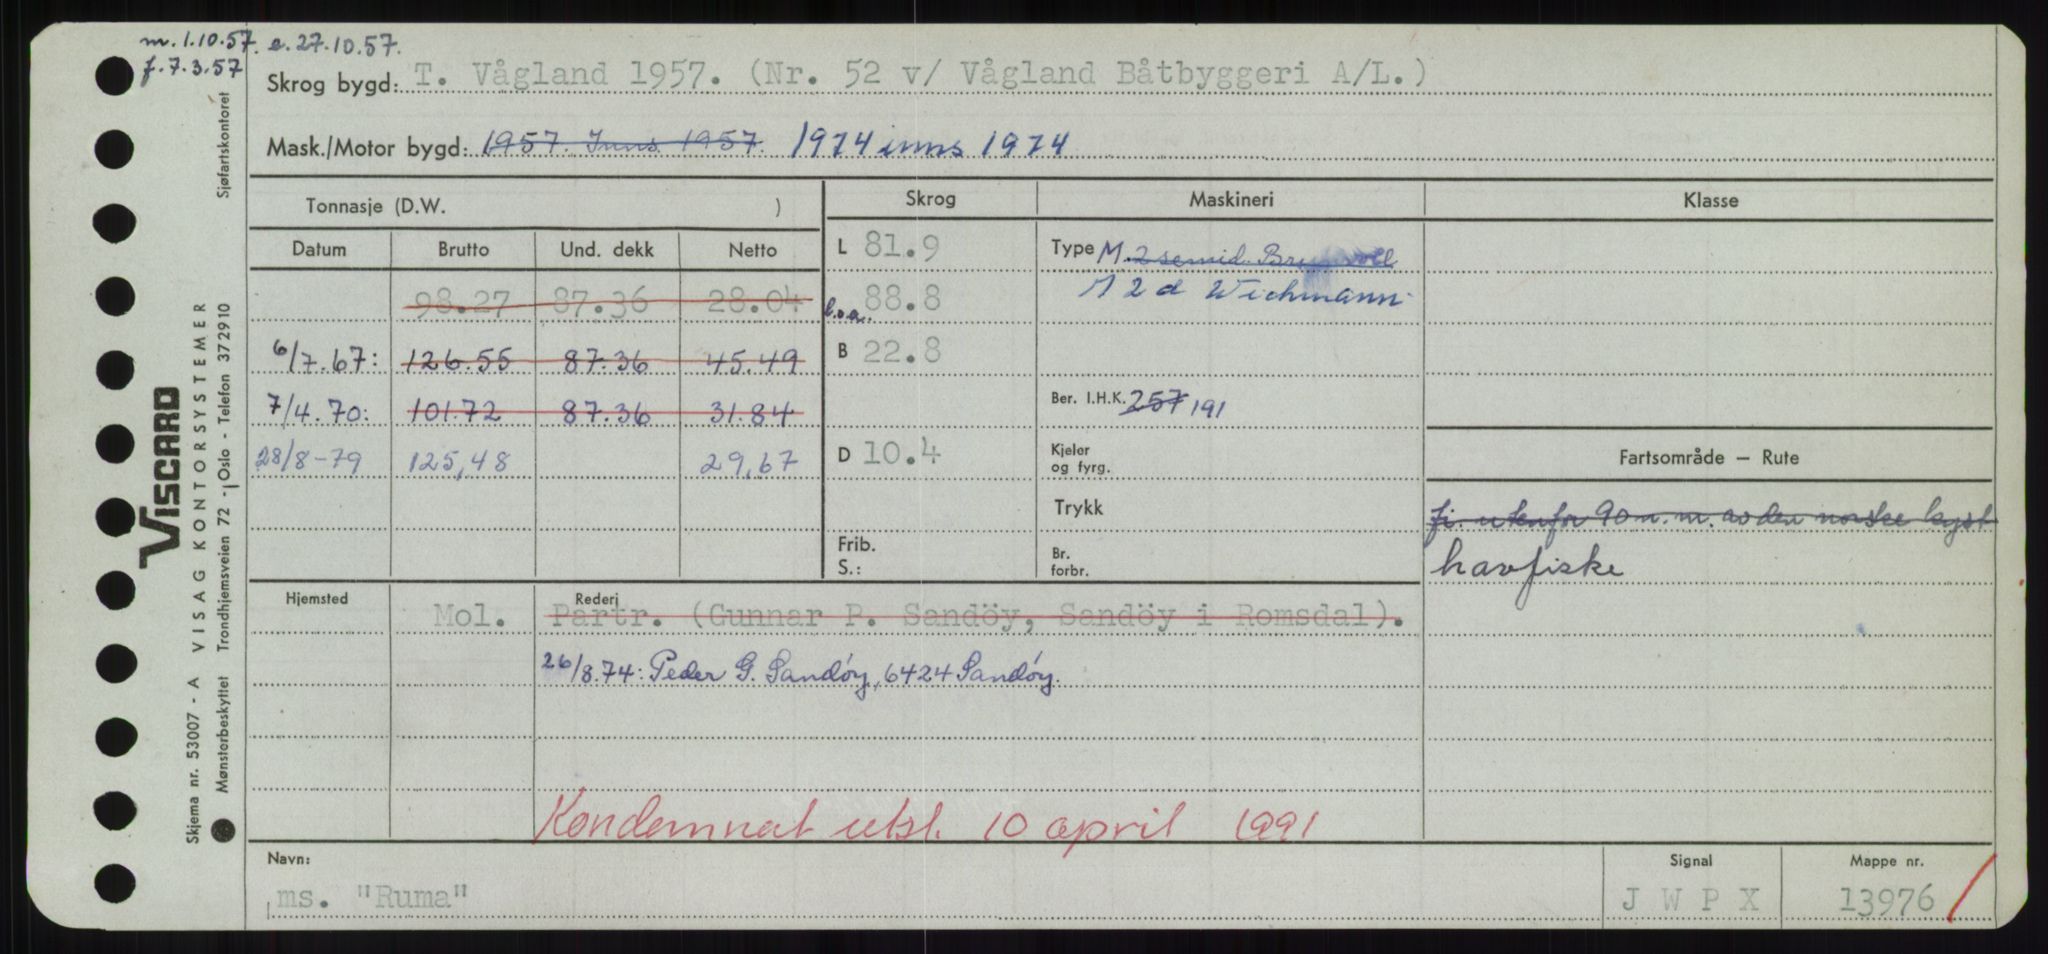 m. 1.10.57. e. 27.10.57.
f. 7.3.57
Skrog bygd: T. Vågland 1957. (Nr. 52 v/ Vågland Båtbyggeri A/L.)
Mask./Motor bygd: 1957. Inns. 1957. 1974 inns 1974
Tonnasje (D.W. )
Skrog Maskineri Klasse
Datum Brutto Und. dekk Netto
L 81.9
Type M. 2 semid. Brunvoll
M 2 d Wichmann
98.27 87.36 28.04
l.o.a. 88.8
6/7.67: 126.55 87.36 45.49
B 22.8
7/4.70: 101.72 87.36 31.84
Ber. I.H.K. 257 191
28/8-79 125,48 29,67
D 10.4
Kjeler
og fyrg.
Fartsområde — Rute
Trykk
fi. utenfor 90 n. m. av den norske kyst
havfiske
Frib.
S.:
Br.
forbr.
Hjemsted Rederi
Mol. Partr. (Gunnar P. Sandöy, Sandöy i Romsdal).
26/8.74: Peder G. Sandöy, 6424 Sandöy.
Kondemnat utsl. 10 april 1991
Navn: Signal Mappe nr.
ms. "Ruma" J W P X 13976
Sjøfartskontoret
VISCARD
VISAG KONTORSYSTEMER
Trondhjemsveien 72 - Oslo - Telefon 372910
Skjema nr. 53007 - A
Mønsterbeskyttet